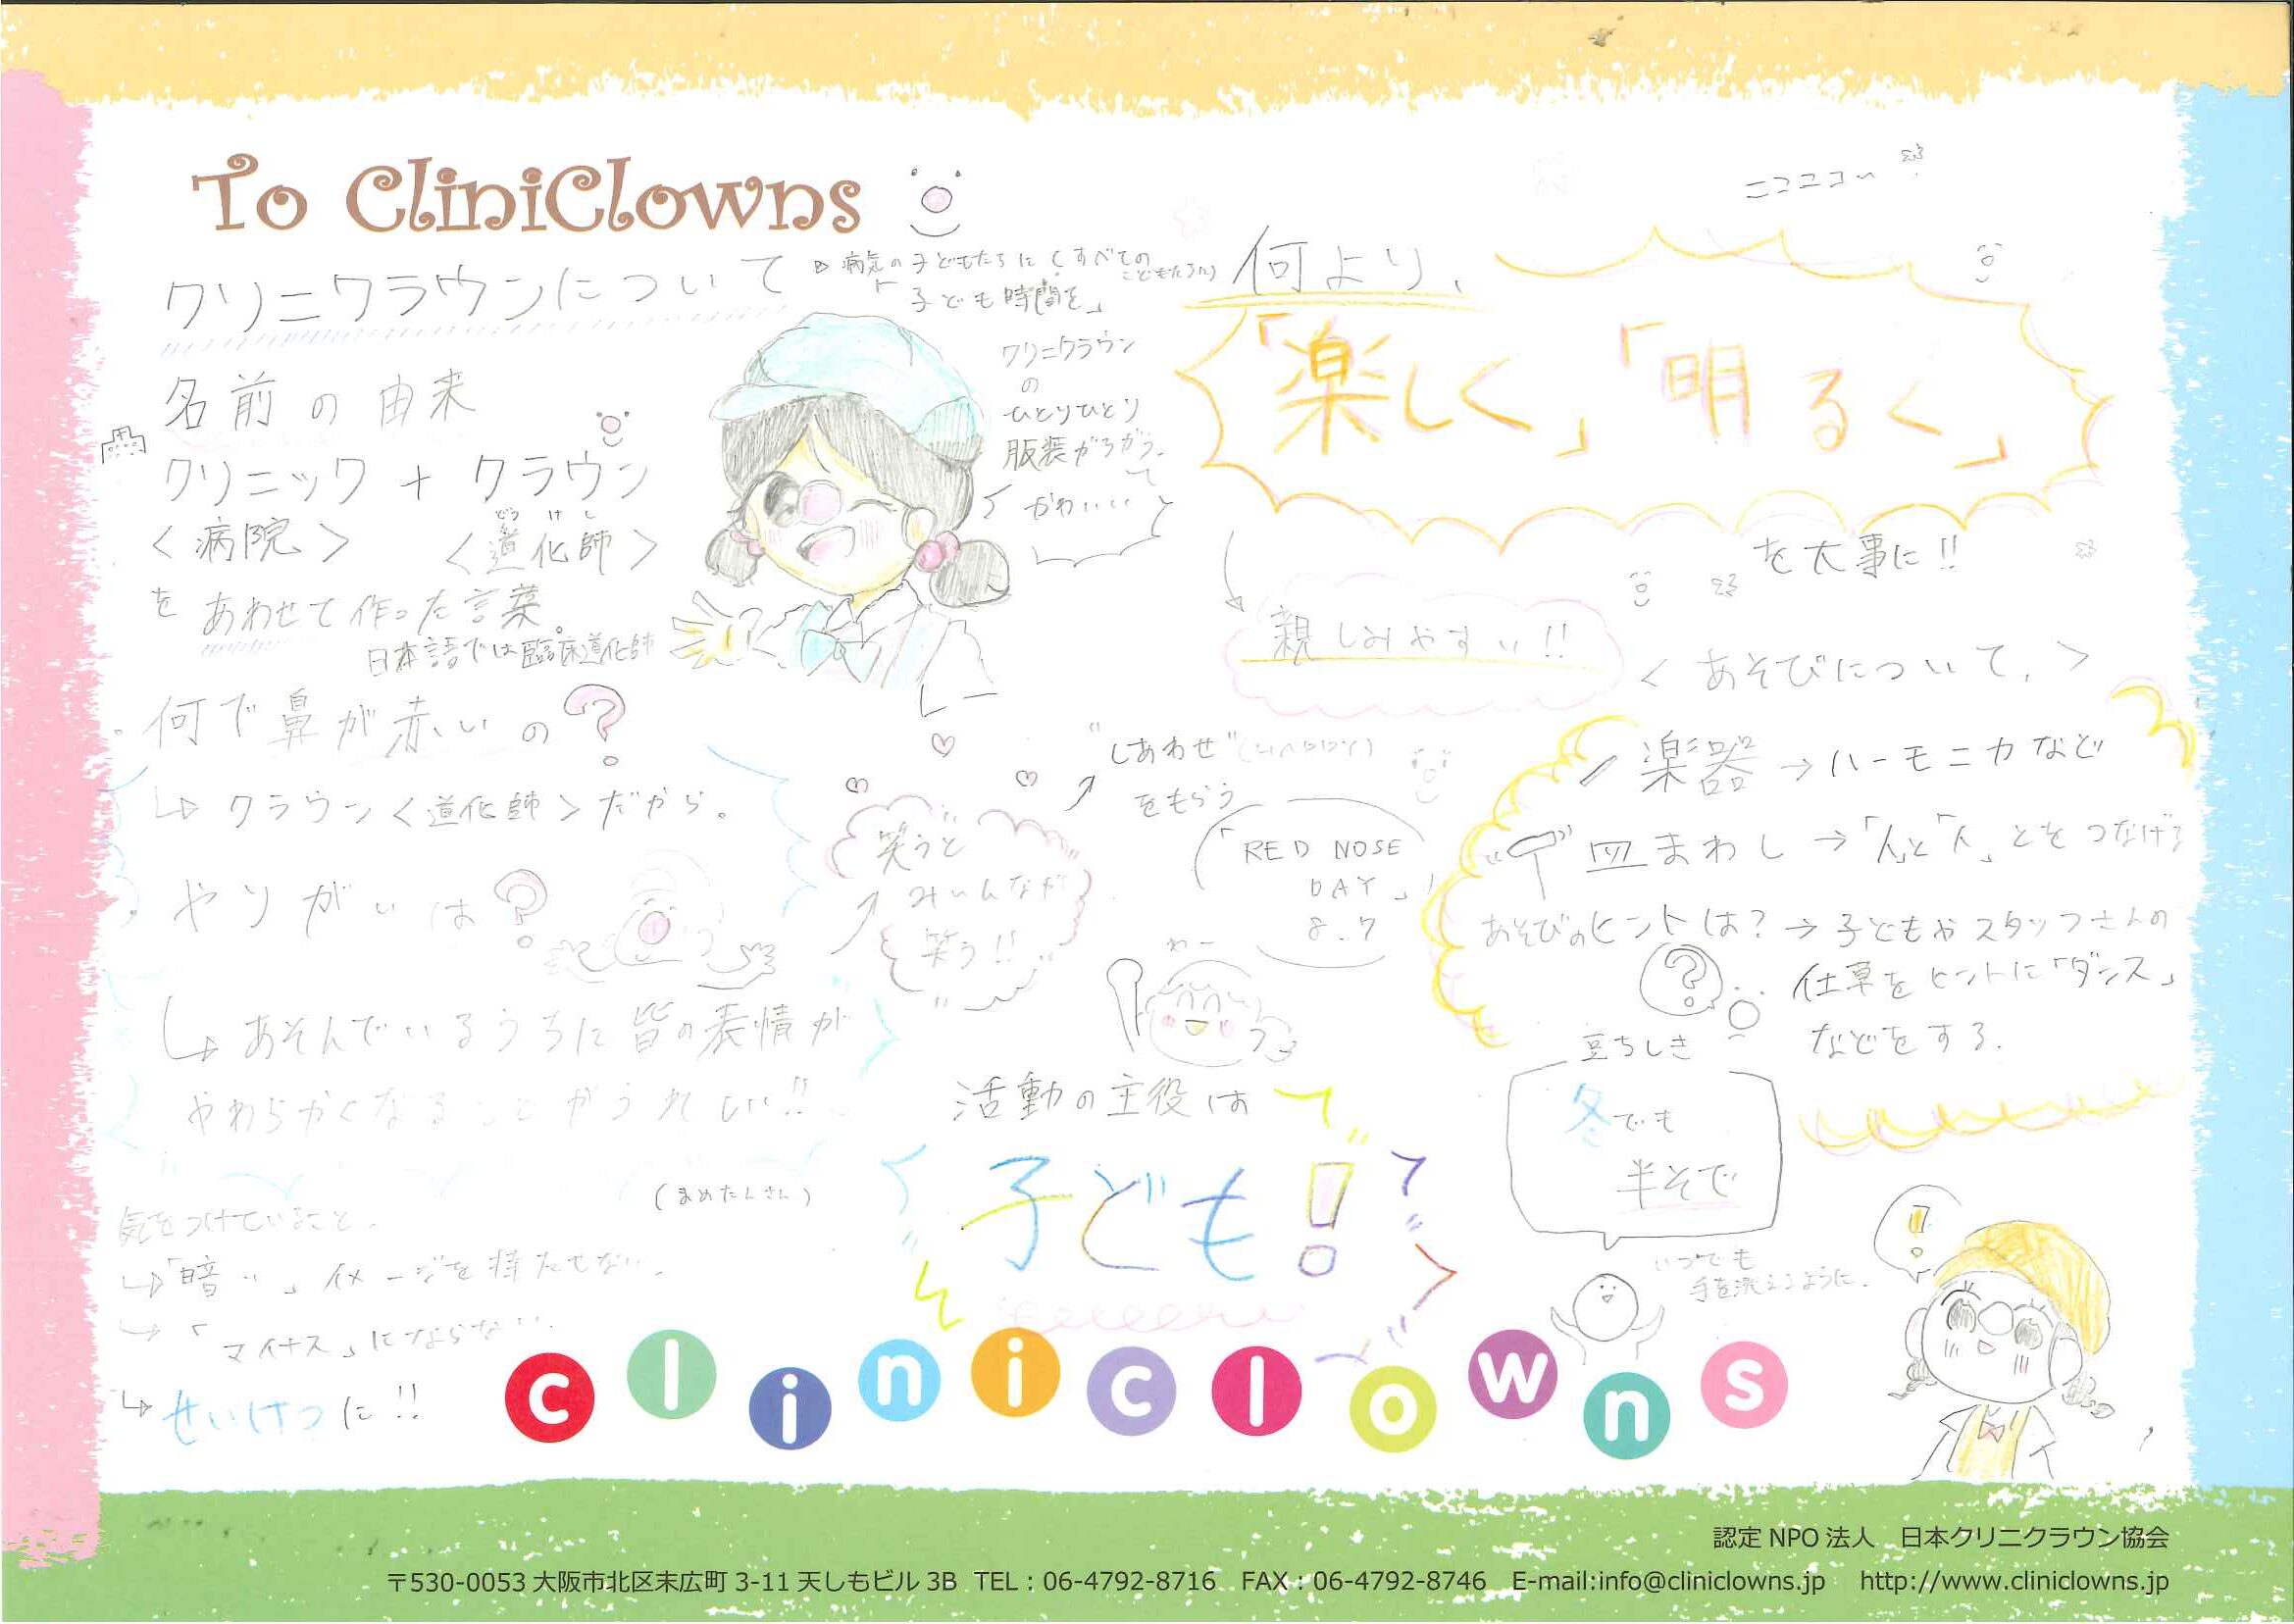 To CliniClowns
クリニクラウンについて
病気の子どもたちに(すべての
こどもたちに)
「子ども時間を」
名前の由来
クリニック + クラウン
どうけし
<病院> <道化師>
をあわせて作った言葉。
日本語では臨床道化師
クリニクラウン
の
ひとりひとり
服装がちがう。
て
かわいい
何で鼻が赤いの?
クラウン<道化師>だから。
やりがいは?
あそんでいるうちに皆の表情が
やわらかくなることがうれしい!!
(まめたんさん)
気をつけていること。
「暗い」イメージを持たせない。
「マイナス」にならない。
せいけつに!!
笑うと
みいんなが
笑う!!
"しあわせ"(HAPPY)
をもらう
「RED NOSE
DAY」
8.7
わー
活動の主役は
子ども!
何より、
ニコニコ
「楽しく」「明るく」
を大事に!!
親しみやすい!!
<あそびについて。>
楽器→ハーモニカなど
皿まわし→「人」と「人」とをつなげる
あそびのヒントは?→子どもやスタッフさんの
仕草をヒントに「ダンス」
などをする。
豆ちしき
冬でも
半そで
いつでも
手を洗えるように。
!
cliniclowns
認定 NPO 法人 日本クリニクラウン協会
〒530-0053 大阪市北区末広町 3-11 天しもビル 3B TEL：06-4792-8716 FAX：06-4792-8746 E-mail:info@cliniclowns.jp http://www.cliniclowns.jp